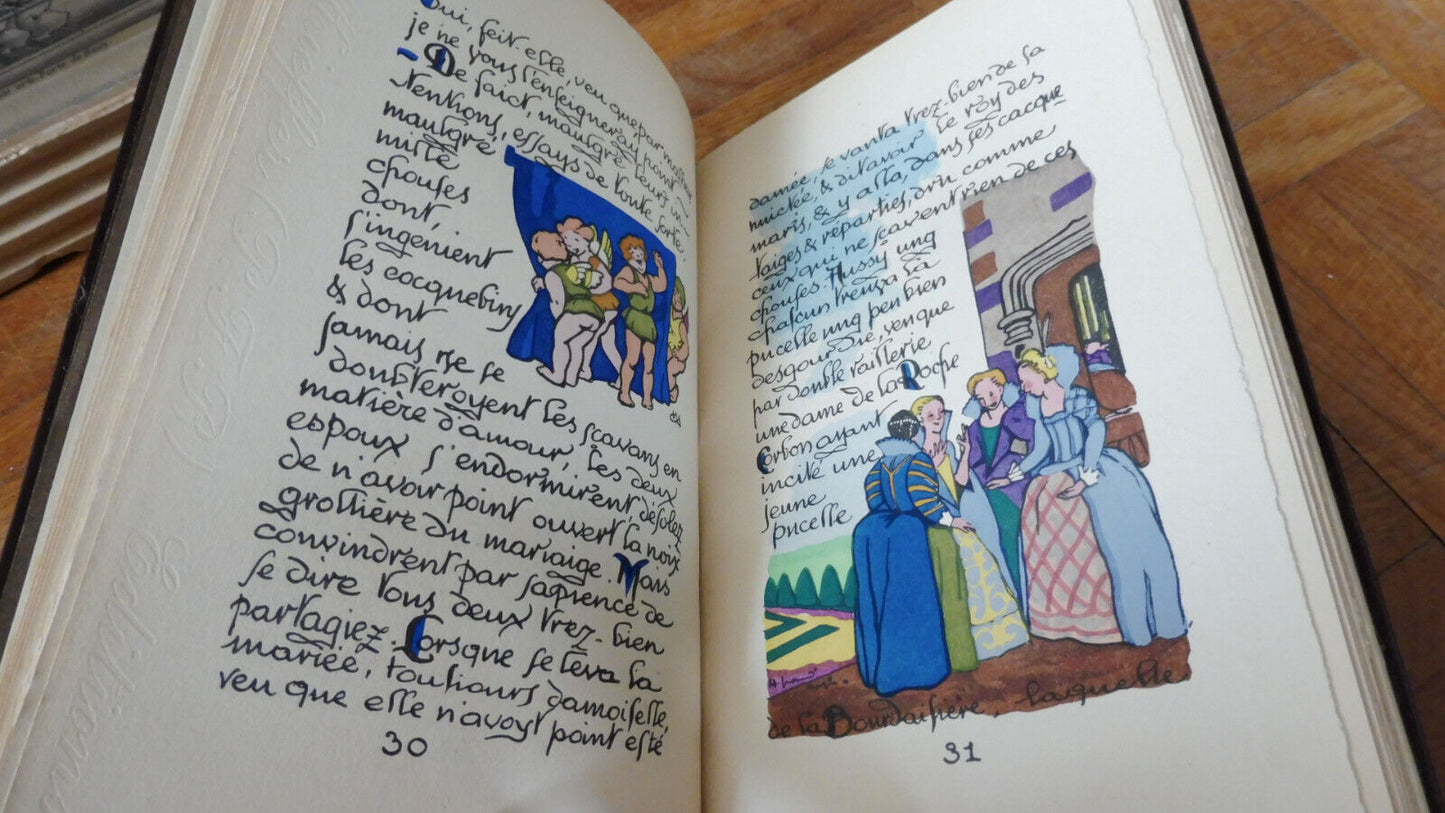 oui, feit-elle, veu que par malheur
je ne vous l'enseigneray point.
- De faict, maulgré leurs in-
tentions, essays de toute sorte,
maulgré
mille
chouses
dont
s'ingénient
les cocquebins
& dont
jamais ne se
doubteroyent les sçavans en
matière d'amour, les deux
espoux s'endormirent, désolez
de n'avoir point ouvert la noix
grollière du mariaige. Mais
convindrent par sapience de
se dire tous deux trez-bien
partagiez. Lorsque se leva la
mariée, tousiours damoiselle,
veu que elle n'avoyt point esté
30
damée, se vanta trez-bien de sa
nuictée, & dit avoir le roy des
maris, & y alla, dans ses cacque
taiges & reparties, dru comme
ceux qui ne sçavent rien de ces
chouses. Aussy ung
chascun treuva la
pucelle ung peu bien
desgourdie, veu que
par double raillerie
une dame de la Roche
Corbon ayant
incité une
jeune
pucelle
de la Bourdaisière, laquelle
31
Editions